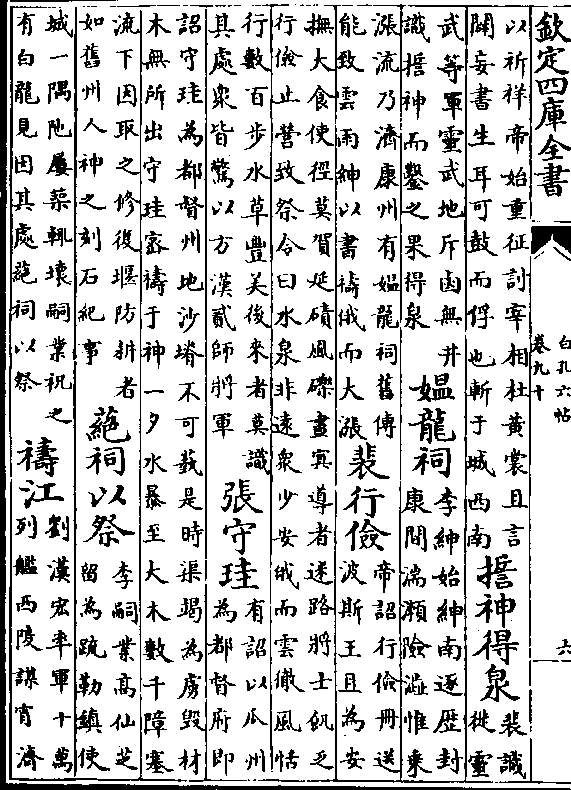 欽定四庫全書
白孔六帖
卷九十
六
以祈祥帝始重征討宰相杜黄裳且言
闢妄書生耳可鼓而俘也斬于城西南
誓神得泉
裴識
徙靈
武等軍靈武地斥鹵無井
識誓神而鑿之果得泉
媪龍祠
李紳始紳南逐歴封
康間湍瀬險澁惟乘
漲流乃濟康州有媪龍祠舊傳
能致雲雨紳以書禱俄而大漲
裴行儉
帝詔行儉冊送
波斯王且為安
撫大食使徑莫賀延磧風礫晝冥導者迷路將士飢乏
行儉止營致祭令曰水泉非遠衆少安俄而雲徹風恬
行數百步水草豐美後來者莫識
其處衆皆驚以方漢貳師將軍
張守珪
有詔以瓜州
為都督府即
詔守珪為都督州地沙塉不可蓺是時渠竭為虜毁材
木無所出守珪密禱于神一夕水暴至大木數千障塞
流下因取之修復堰防耕者
如舊州人神之刻石紀事
蕝祠以祭
李嗣業高仙芝
留為疏勒鎮使
城一隅阤屢築輒壊嗣業祝之
有白龍見因其處蕝祠以祭
禱江
劉漢宏率軍十萬
列艦西陵謀宵濟